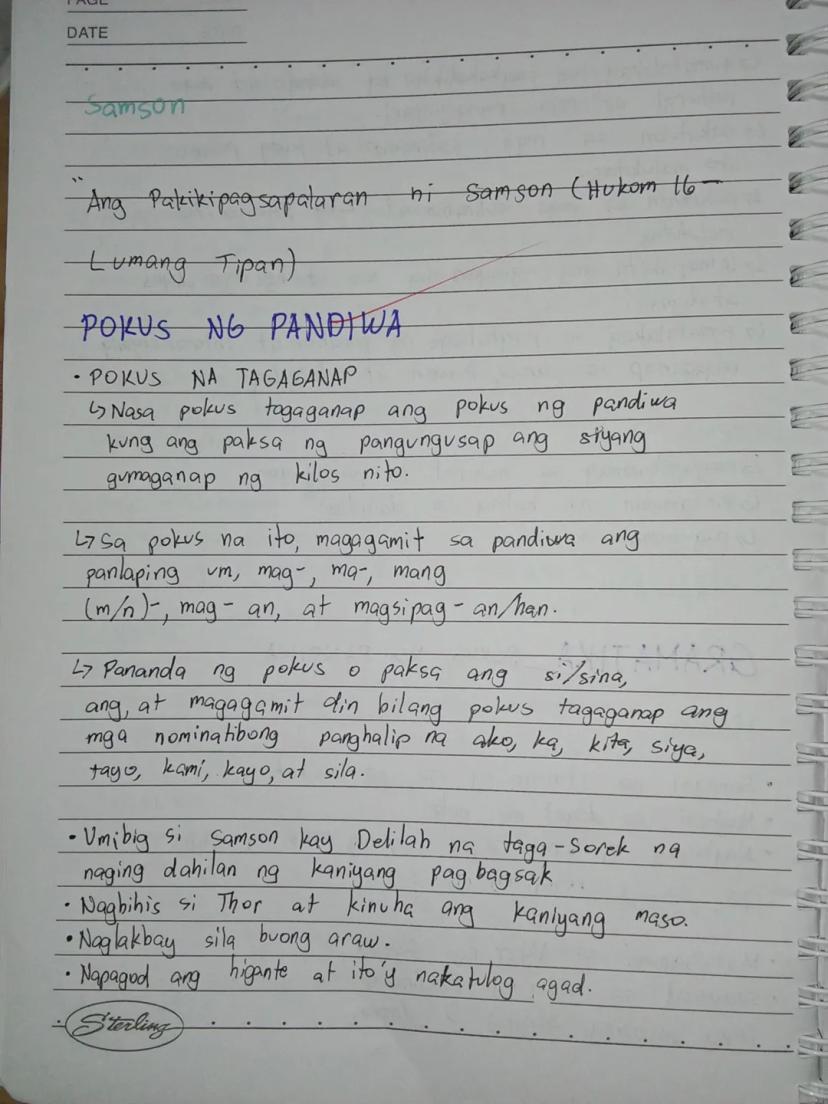 PAGE
DATE
Samson
"Ang Pakikipagsapalaran ni Samson (Hukom 16 -
Lumang Tipan)
POKUS NG PANDIWA
• POKUS NA TAGAGANAP
↳ Nasa pokus tagaganap ang pokus ng pandiwa
kung ang paksa ng pangungusap ang siyang
gumaganap ng kilos nito.
↳ Sa pokus na ito, magagamit sa pandiwa ang
panlaping um, mag-, ma-, mang
(m/n)-, mag - an, at magsipag - an/han.
↳ Pananda ng pokus o paksa ang si/sina,
ang, at magagamit din bilang pokus tagaganap ang
mga nominatibong panghalip na ako, ka, kita, siya,
tayo, kami, kayo, at sila.
• Umibig si Samson kay Delilah na taga-Sorek na
naging dahilan ng kaniyang pag bagsak
• Nagbihis si Thor at kinuha ang kaniyang maso.
• Naglakbay sila buong araw.
• Napagod ang higante at ito'y nakatulog agad.
Sterling